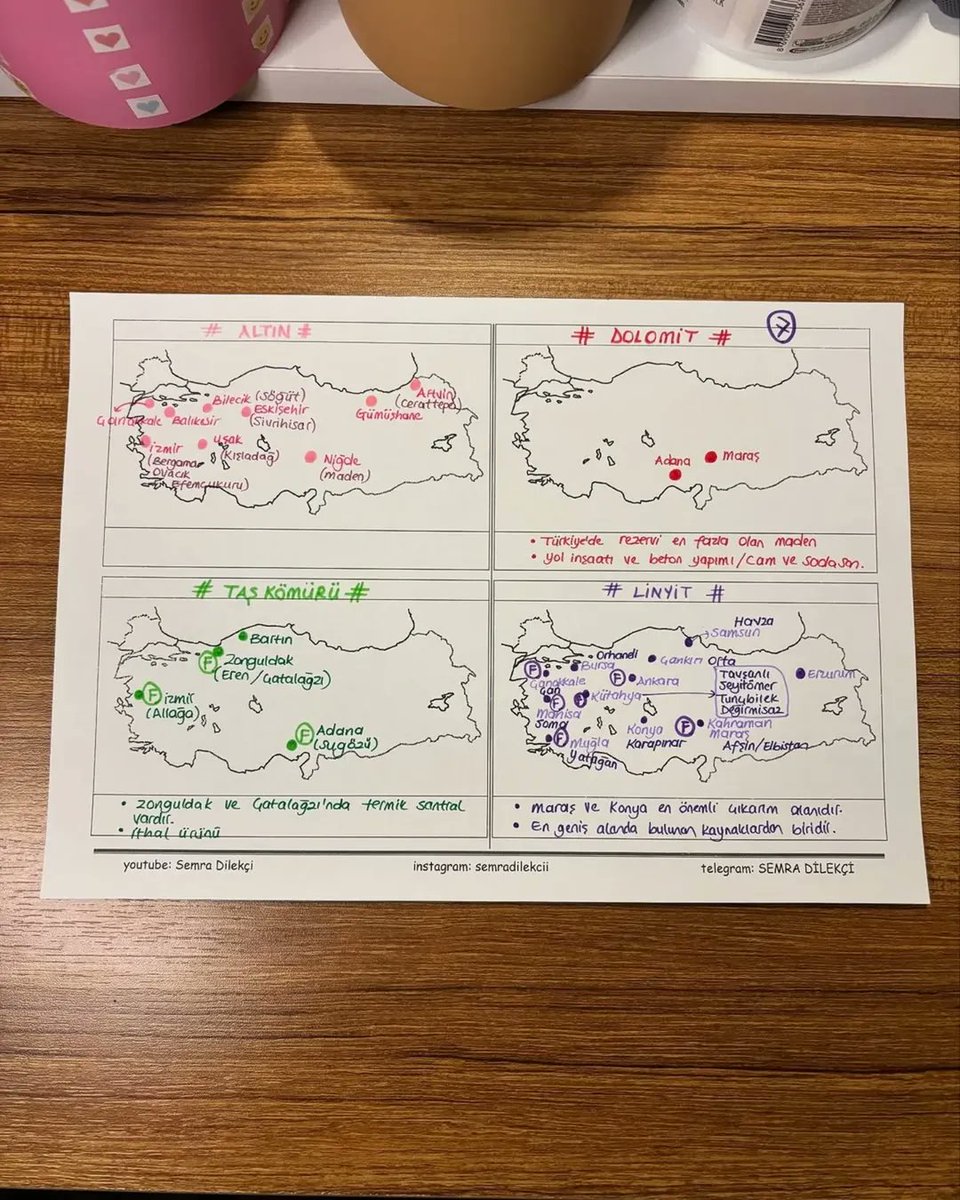 # ALTIN #
Artvin
(Cerattepe)
Gümüşhane
Bilecik (Söğüt)
Eskişehir
(Sivrihisar)
Çanakkale
Balıkesir
İzmir
(Bergama
Ovacık
Efemçukuru)
Uşak
(Kışladağ)
Niğde
(maden)
# DOLOMİT #
7
Adana
Maraş
• Türkiye'de rezervi en fazla olan maden
• yol inşaatı ve beton yapımı/cam ve sodasan.
# TAŞ KÖMÜRÜ #
Bartın
F Zonguldak
(Eren / Çatalağzı)
F İzmir
(Aliağa)
F Adana
(Sugözü)
• Zonguldak ve Çatalağzı'nda termik santral
vardır.
• İthal ürünü
# LİNYİT #
Havza
Samsun
Orhaneli
Bursa
Çankırı Orta
F
Çanakkale
Çan
F Ankara
Kütahya
Tavşanlı
Seyitömer
Tunçbilek
Değirmisaz
Erzurum
F
Manisa
Soma
F Muğla
Yatağan
Konya
Karapınar
F Kahraman
maraş
Afşin/Elbistan
• Maraş ve Konya en önemli çıkarım alanıdır.
• En geniş alanda bulunan kaynaklardan biridir.
youtube: Semra Dilekçi
instagram: semradilekcii
telegram: SEMRA DİLEKÇİ